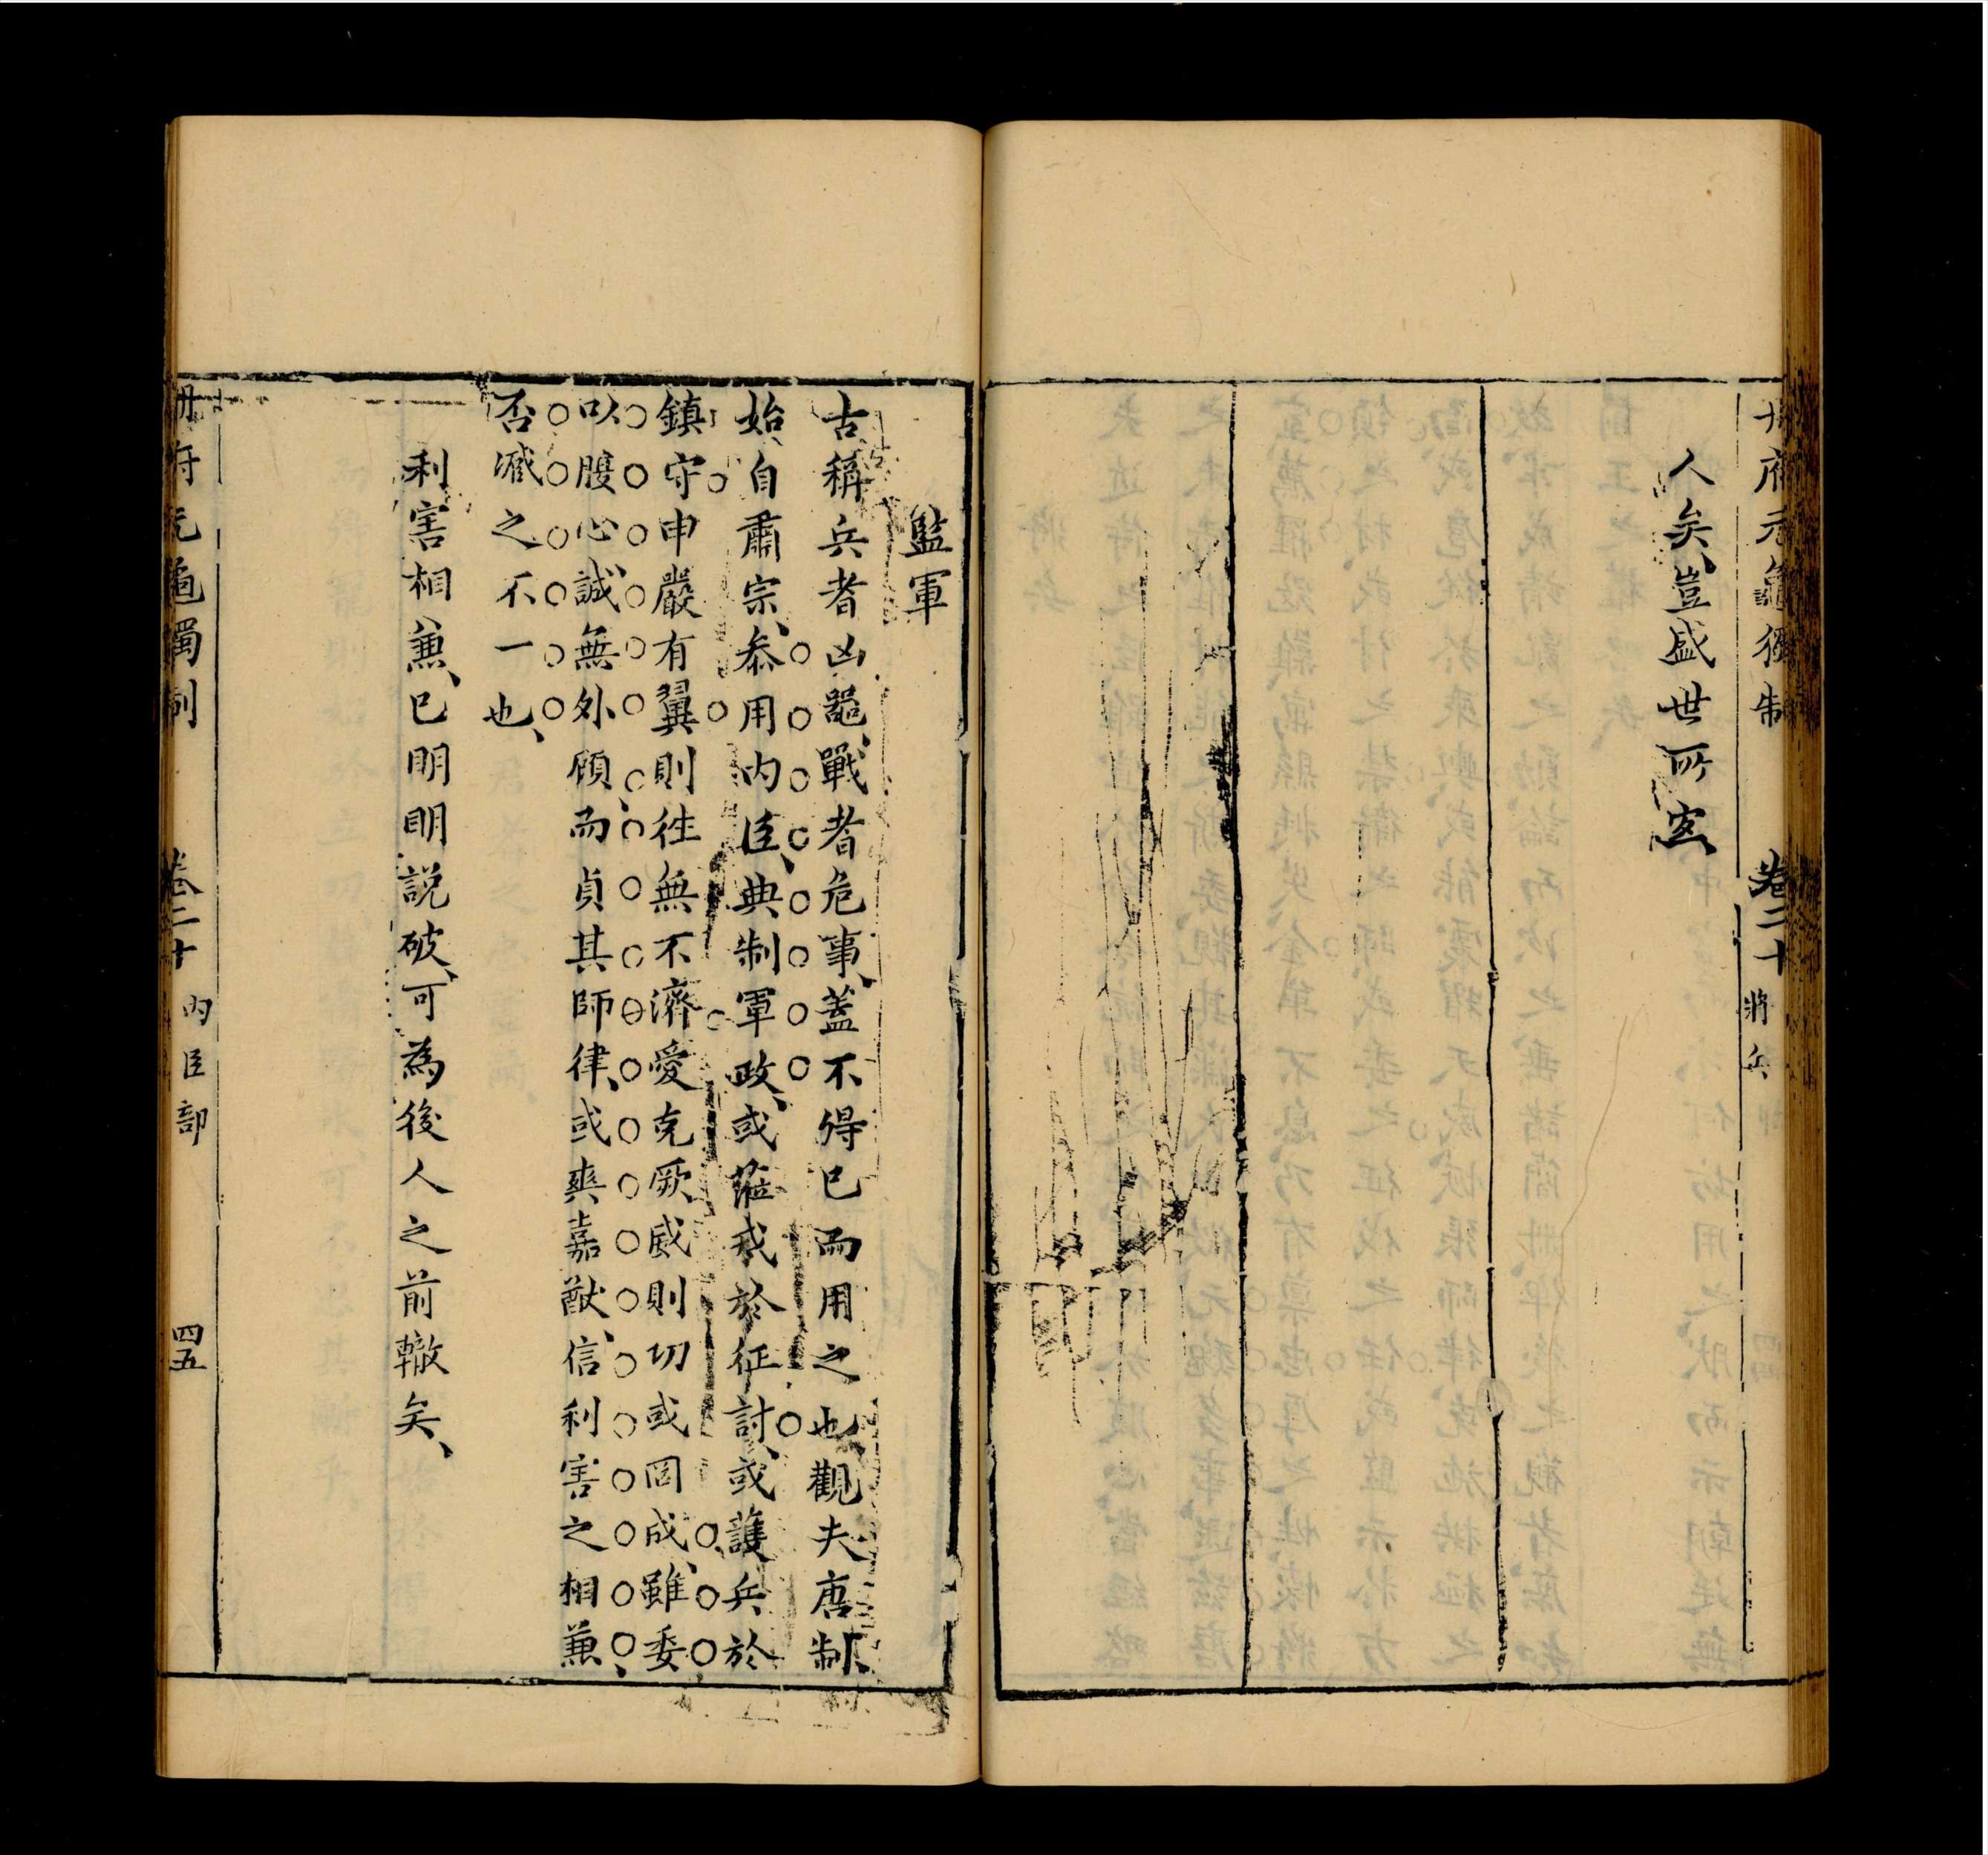 冊府元龜獨制　卷二十　將兵
人矣、豈盛世所宜、
監軍
古稱兵者凶噐、戰者危事、蓋不得已而用之也、觀夫唐制、
始自肅宗、叅用内臣、典制軍政、或蒞戎於征討、或護兵於
鎮守申嚴有翼則徃無不濟愛克厥威則切或罔成雖委
以腹心、誠無外顧、而貞其師律、或爽嘉猷、信利害之相兼、
否臧之不一也、
利害相兼、已明明説破、可為後人之前轍矣、
冊府元龜獨制　卷二十　内臣部　四五